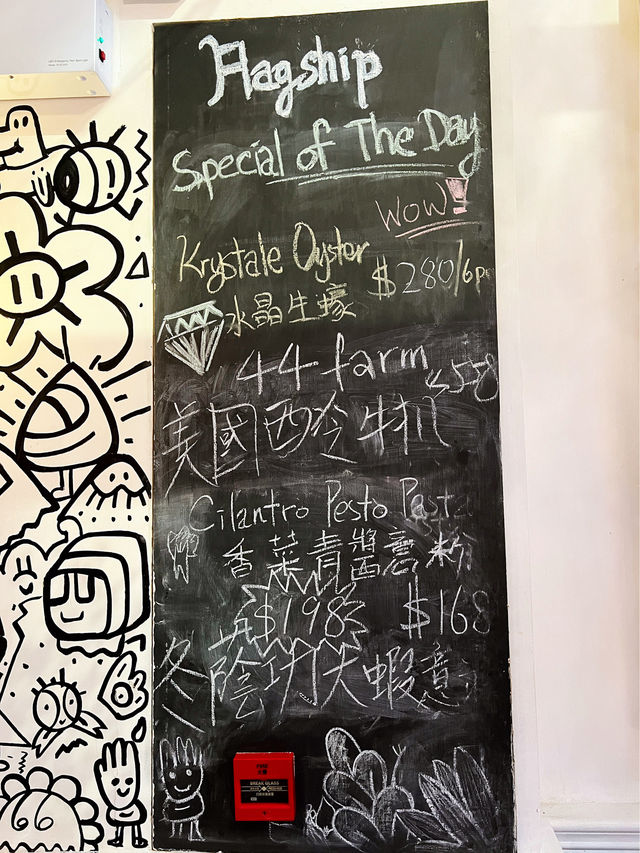 Flagship
Special of The Day
WOW!
Krystale Oyster
水晶生蠔
$280/6p
44 farm
$558
美國西冷牛扒
Cilantro Pesto Pasta
香菜青醬意粉
$198 $168
冬陰功大蝦意
FIRE
火警
BREAK GLASS